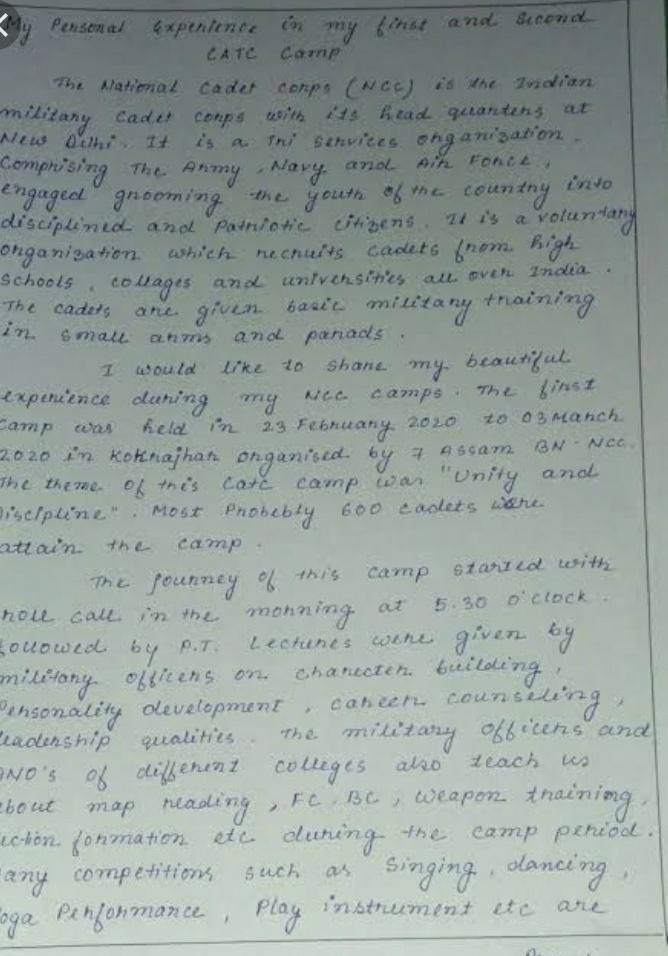 My Personal Experience in my first and Second
CATC Camp
The National Cadet Corps (NCC) is the Indian
military cadet corps with its head quarters at
New Delhi. It is a Tri services organization.
Comprising The Army, Navy and Air Force,
engaged grooming the youth of the country into
disciplined and Patriotic citizens. It is a voluntary
organization which recruits cadets from high
schools, collages and universities all over India.
The cadets are given basic military training
in small arms and parads.
I would like to share my beautiful
experience during my NCC camps. The first
camp was held in 23 February 2020 to 03 March
2020 in Kokrajhar organised by 7 Assam BN. NCC.
The theme of this Catc camp was "Unity and
Discipline". Most Probebly 600 cadets were
attain the camp.
The journey of this camp started with
roll call in the morning at 5.30 o'clock.
followed by P.T. Lectures were given by
military officers on charecter building,
Personality development, career counseling,
leadership qualities. The military officers and
ANO's of different colleges also teach us
about map reading, FC, BC, weapon training,
section formation etc during the camp period.
Many competitions such as Singing, dancing,
Yoga Performance, Play instrument etc are